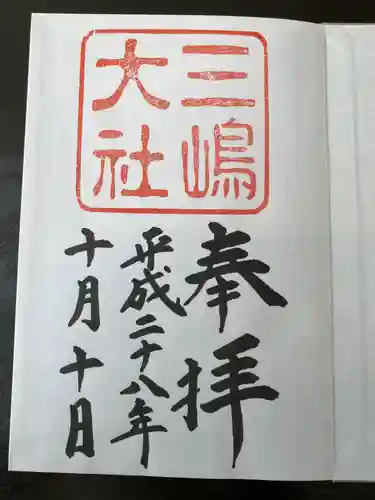 三嶋
大社
奉拝
平成二十八年
十月十日